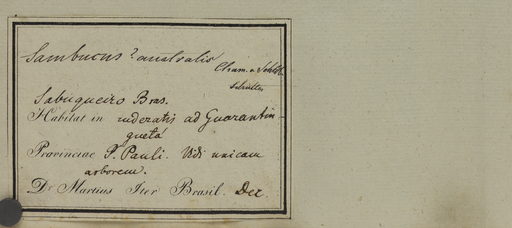 Sambucus? australis
Cham. & Schlt.
Sabugueiro Bras.
Habitat in ruderatis ad Guarantin-
guetá
Provinciae S. Pauli. Vidi unicam
arborem.
Dr Martius Iter Brasil. Dec.